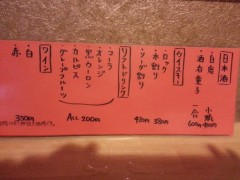 日本酒
・白鹿
・酒呑童子
一合 小瓶
600円 800円
ウイスキー
・ロック
・水割り
・ソーダ割り
450円 350円
ソフトドリンク
・コーラ
・オレンジ
・黒ウーロン
・カルピス
・グレープフルーツ
ALL 200円
ワイン
・白
・赤
350円